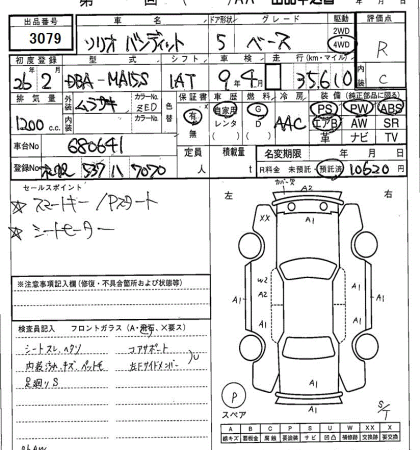 出品番号 車名 ドア形状 グレード 駆動 評価点
3079 ソリオ バンディット 5 ベース 2WD 4WD R
初度登録 型式 シフト 車検 走行(km・マイル) 装備(純正部品に限る) 内装
26年 2月 DBA-MA15S IAT 9年 4月 35,610 C
排気量 外装 カラーNo. 色替 保証書 車歴 燃料 冷房 PS PW ABS
1200 c.c. ムラサキ ZED 有・無 自家用 G AAC エアB AW SR
内装 カラーNo. レンタ D 革 ナビ TV
車台No 680641 定員 積載量 名変期限 年 月 日
登録No 537 7070 人 t R料金 未預託 預託済 10620 円
セールスポイント
☆ スマートキー/Pスタート
☆ シートヒーター
左 右
カバーキズ
A2
A1
XX A1
W2
A1 A2 A1 A1
A1
A1
A1
※注意事項記入欄(修復・不具合箇所および状態等)
検査員記入 フロントガラス(A・飛石、×要ス)
シートスレ、ヘタリ コアサポート
内装 汚れ、キズ 左Fサイドメンバー
足廻りS
P
スペア
S/T
A B C P S U W X XX
線キズ 要板金 腐蝕 要塗装 サビ 凹凸 補修跡 要交換